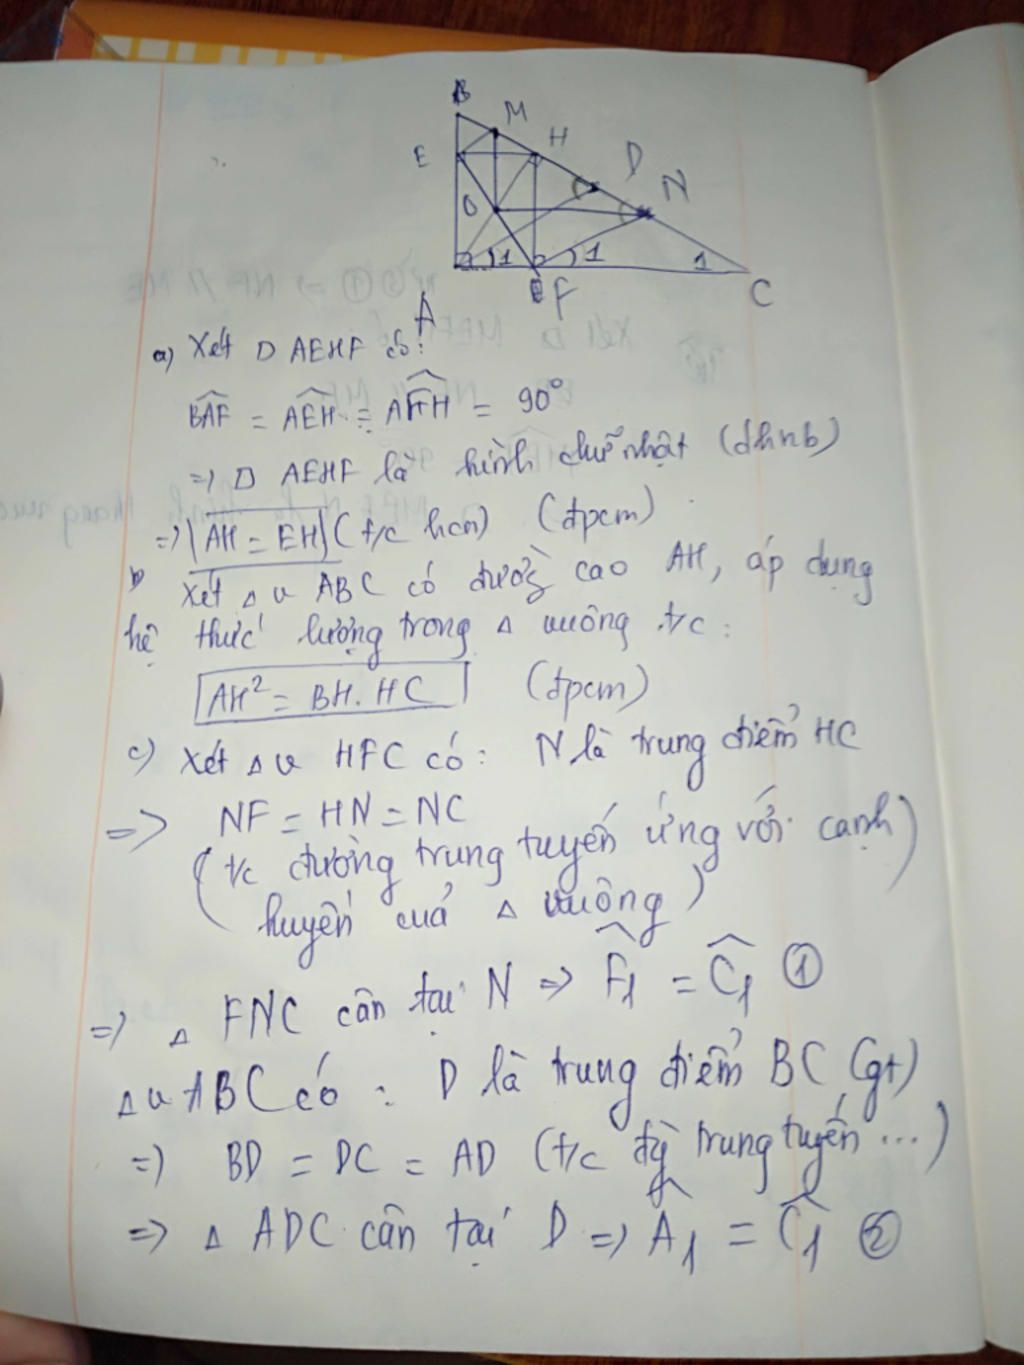 B
M
H
E
D
N
O
1
1
1
F
C
A
a) Xét □ AEHF có:
BAF = AEH = AFH = 90°
=> □ AEHF là hình chữ nhật (dhnb)
=> AH = EH (t/c hcn) (đpcm)
b Xét Δ v ABC có đường cao AH, áp dụng
hệ thức lượng trong Δ vuông t/c:
AH² = BH. HC (đpcm)
c) Xét Δ v HFC có: N là trung điểm HC
=> NF = HN = NC
(t/c đường trung tuyến ứng với cạnh
huyền cuả Δ vuông)
=> Δ FNC cân tại N => F̂1 = Ĉ1 ①
Δ v ABC có: D là trung điểm BC (gt)
=> BD = DC = AD (t/c đg trung tuyến ...)
=> Δ ADC cân tại D => Â1 = Ĉ1 ②